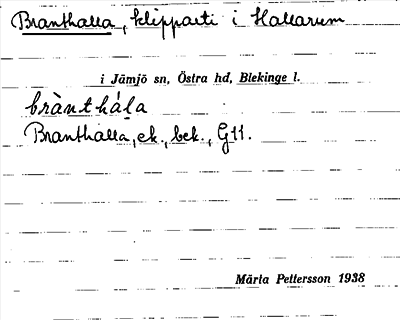 Branthalla, klipparti i Hallarum
i Jämjö sn, Östra hd, Blekinge l.
brànthála
Branthalla, ek., bek., G11.
Märta Pettersson 1938